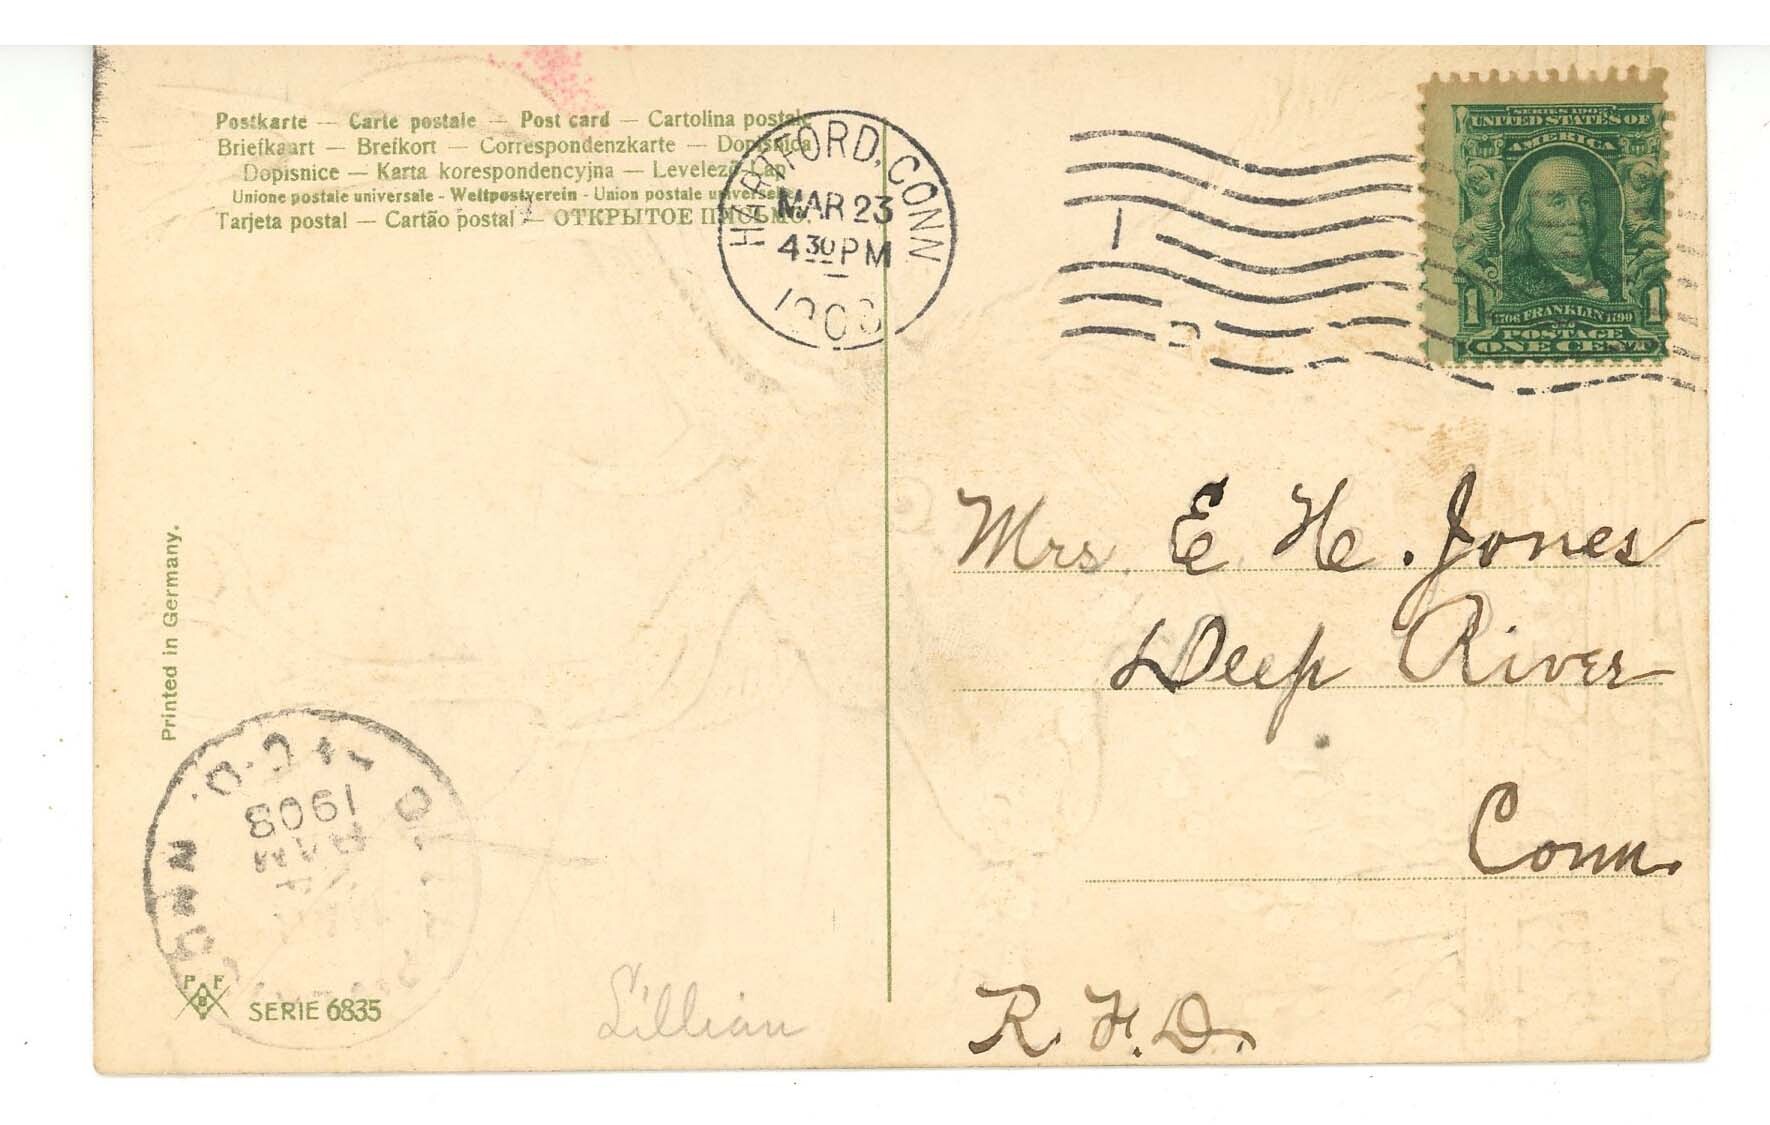 Postkarte — Carte postale — Post card — Cartolina postale
Briefkaart — Brefkort — Correspondenzkarte — Dopisnica
Dopisnice — Karta korespondencyjna — Levelező-Lap
Unione postale universale - Weltpostverein - Union postale universelle
Tarjeta postal — Cartão postal — ОТКРЫТОЕ ПИСЬМО.
HARTFORD, CONN
MAR 23
4 30 PM
1908
1
D
SERIES 1902
UNITED STATES OF
AMERICA
1706 FRANKLIN 1790
1 1
POSTAGE
ONE CENT
Mrs. E H. Jones
Deep River
Conn.
R.F.D.
Printed in Germany.
CONN
REC'D.
1908
P F
B
SERIE 6835
Lillian